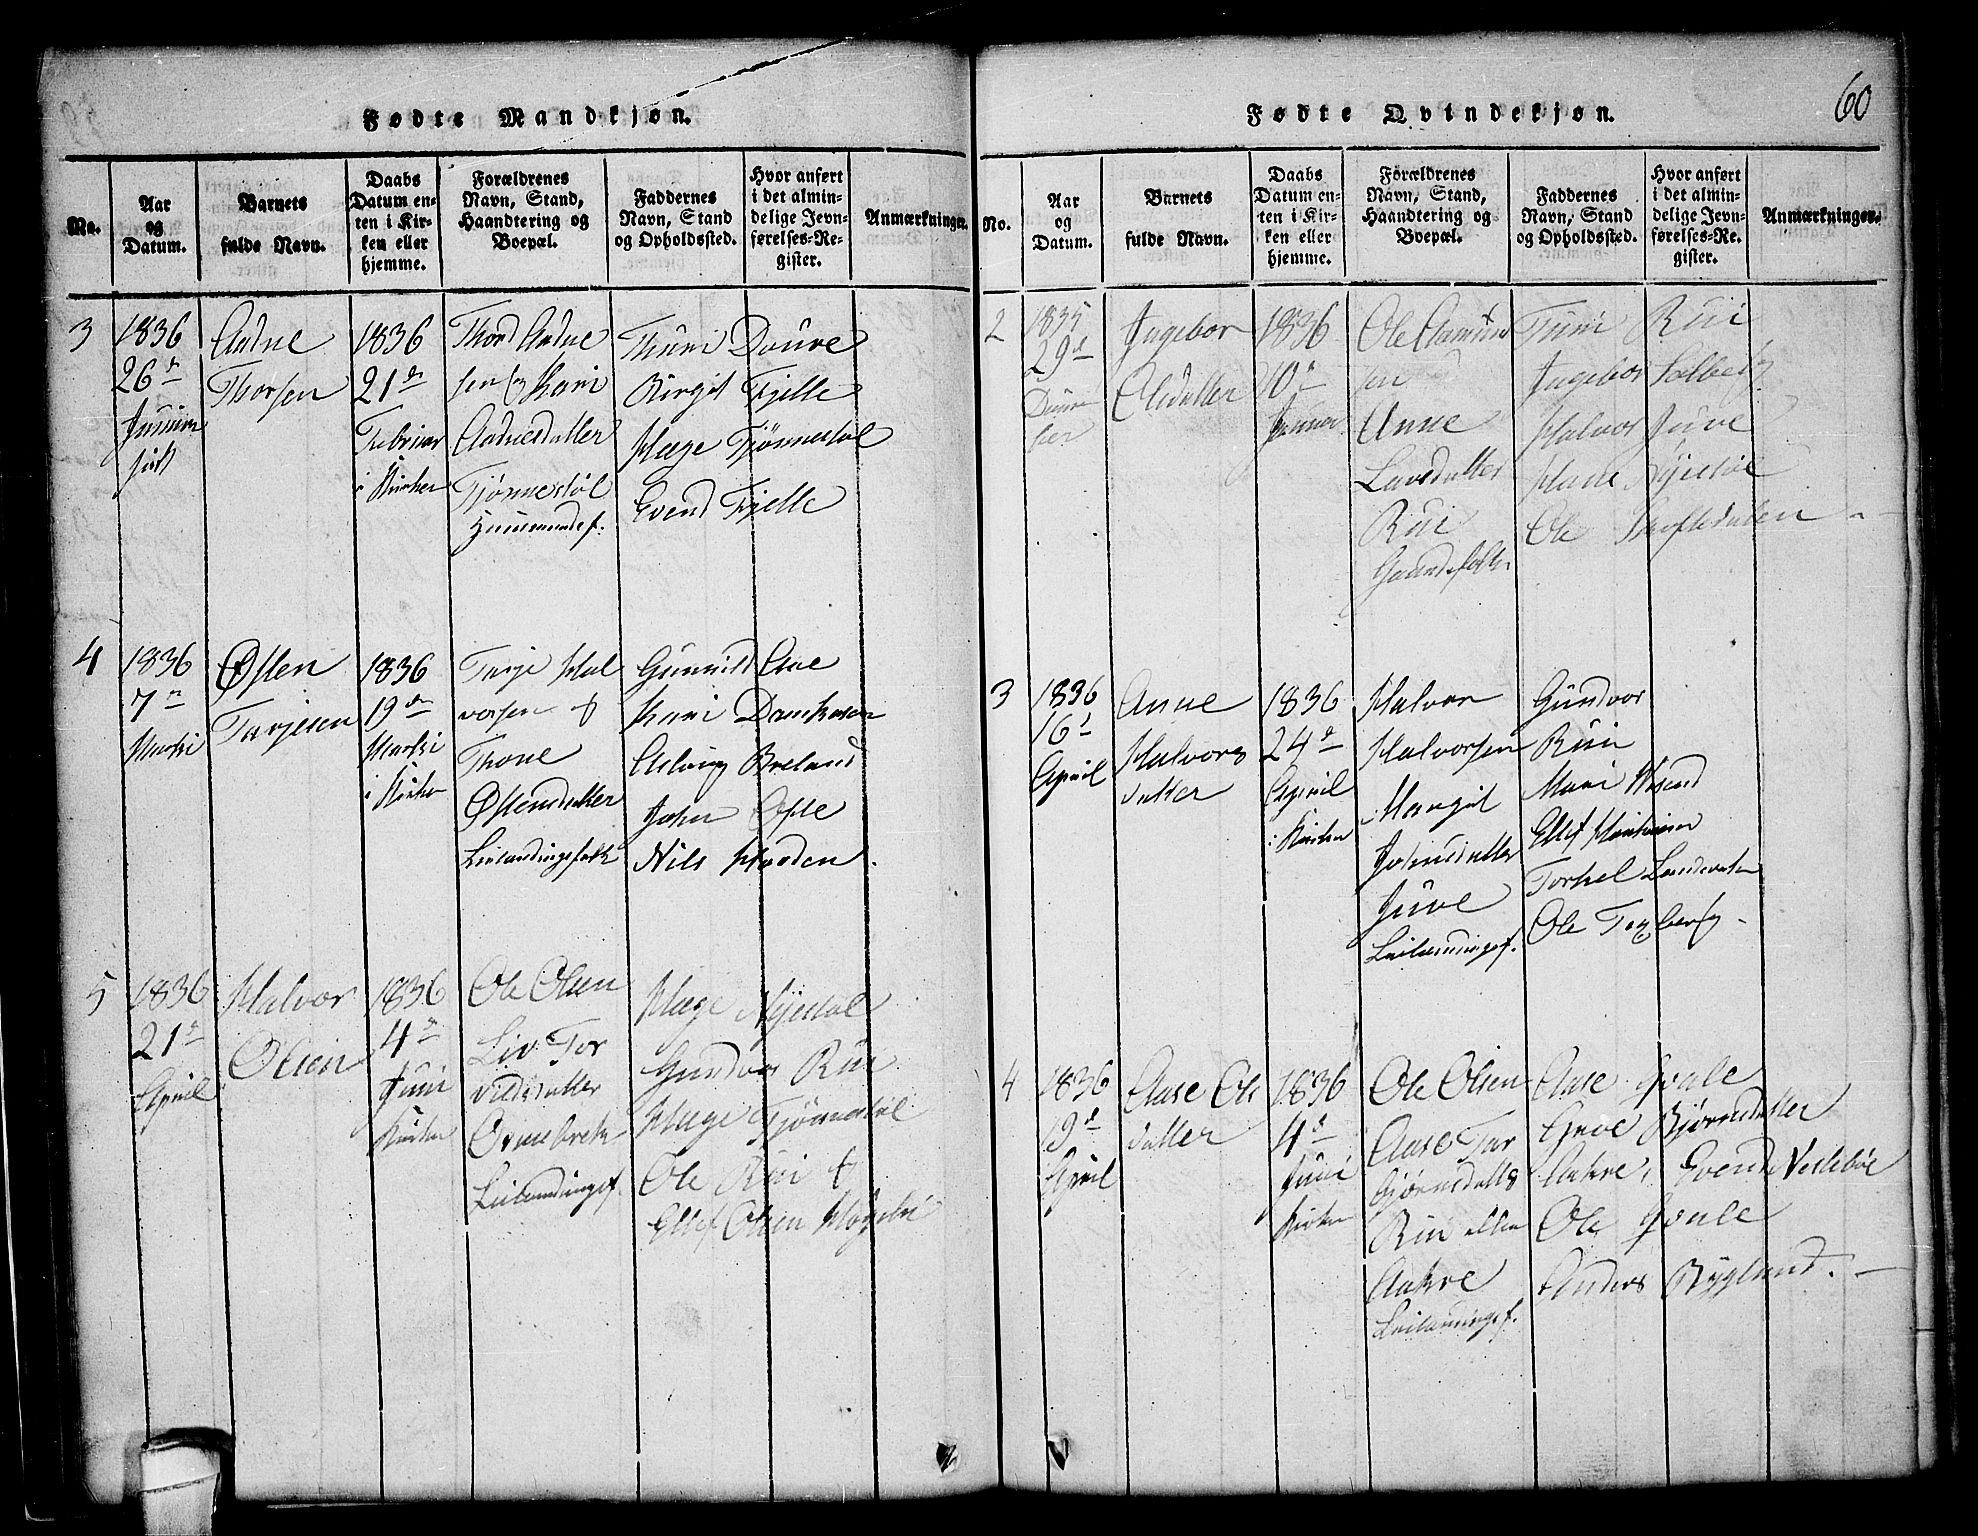 60
Fødte Mandkjøn.
No.
Aar og Datum.
Barnets fulde Navn.
Daabs Datum enten i Kirken eller hjemme.
Forældrenes Navn, Stand, Haandtering og Boepæl.
Faddernes Navn, Stand og Opholdssted.
Hvor anført i det almindelige Jevnførelses-Register.
Anmærkninger.
3
1836
26de
Aadne
Thorsen
1836
21de
Februar
i Kirken
Thord Aadne
sen og Kari
Aadnesdatter
Tjønnestøl
Huusmandsf.
Thuni Doure
Birgit Fjelle
Hæge Tjønnestøl
Evend Fjelle
4
1836
7de
Martsi
Østen
Tarjesen
1836
19de
Martsi
i Kirken
Tarje Hal
vorsen &
Thone
Østensdatter
Leilændingsfolk
Gunnild Aae
Kari
Aslaug Breland
John Ofte
Nils Hovden.
5
1836
21de
April
Halvor
Olsen
1836
4de
Juni
Kirken
Ole Olsen
Liv Tor
vildsdatter
Ormebrek
Leilændingsf.
Hæge Nyestøl
Gundvor Rui
Hæge Tjønnestøl
Ole Rui &
Ellef Olsen
Fødte Qvindekjøn.
No.
Aar og Datum.
Barnets fulde Navn.
Daabs Datum enten i Kirken eller hjemme.
Forældrenes Navn, Stand, Haandtering og Boepæl.
Faddernes Navn, Stand og Opholdssted.
Hvor anført i det almindelige Jevnførelses-Re. gister.
Anmærkninger.
2
1835
29de
Ingebor
Olsdatter
1836
10de
Januar
Ole Aamund
sen
Anne
Lavsdatter
Rui
Gaardsfolk
Tuni Rui
Ingebor Solberg
Halvor Juve
Nyestøl
Ole
3
1836
16de
April
Anne
Halvors
datter
1836
24de
April
i Kirken
Halvor
Halvorsen
Margit
Johnsdatter
Juve
Leilændingsf.
Gundvor
Rui
Mari
Ellef
Torkel
Ole
4
1836
19de
April
Aase Ols
datter
1836
4de
Juni
Kirken
Ole Olsen
Aase Tar
bjørnsdatter
Rui eller
Aakre
Leilændingsf.
Aase Hvale
Bjørnsdatter
Aakre, Evend Veslebøe
Ole Hvale
Anders Rygland.